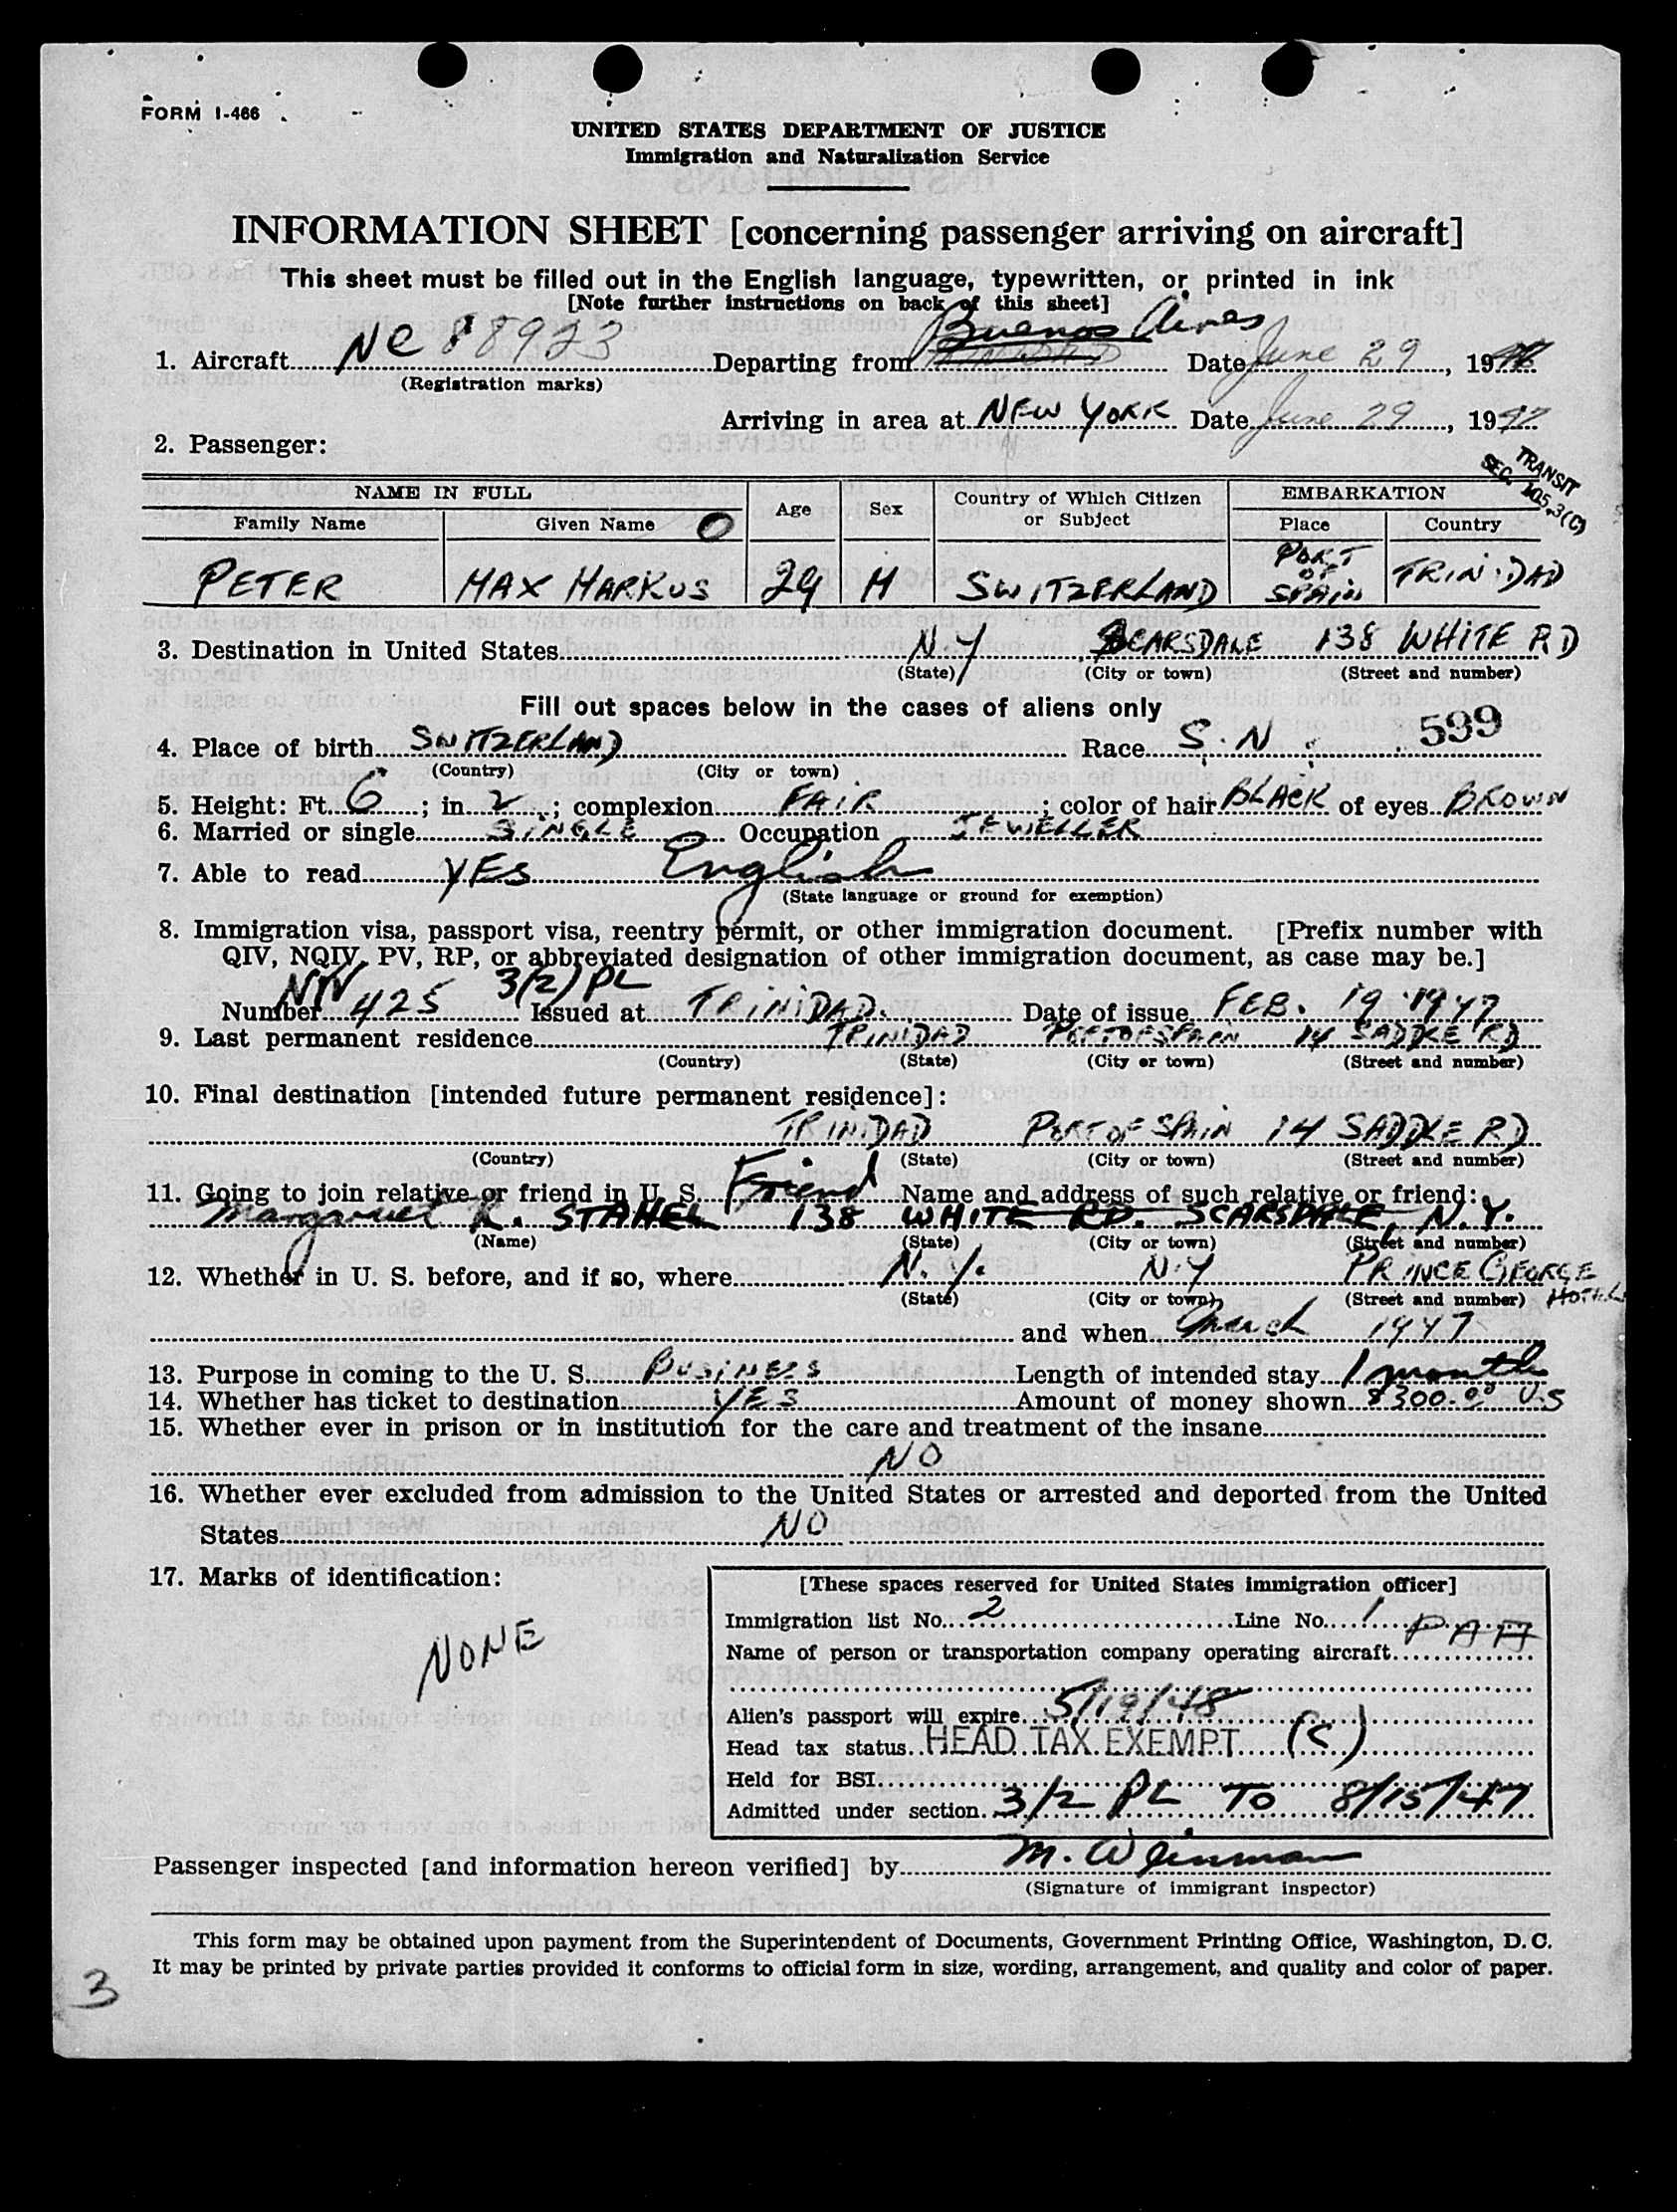 FORM I-466
UNITED STATES DEPARTMENT OF JUSTICE
Immigration and Naturalization Service
INFORMATION SHEET [concerning passenger arriving on aircraft]
This sheet must be filled out in the English language, typewritten, or printed in ink
[Note further instructions on back of this sheet]
Buenos Aires
1. Aircraft NC 88923 Departing from Date June 29, 1947
(Registration marks)
Arriving in area at NEW YORK Date June 29, 1947
2. Passenger:
TRANSIT
SEC. 105.3(C)
NAME IN FULL Age Sex Country of Which Citizen or Subject EMBARKATION
Family Name Given Name O Place Country
PETER MAX MARKUS 29 M SWITZERLAND PORT OF SPAIN TRINIDAD
3. Destination in United States N Y SCARSDALE 138 WHITE RD
(State) (City or town) (Street and number)
Fill out spaces below in the cases of aliens only
4. Place of birth SWITZERLAND Race S.N. 599
(Country) (City or town)
5. Height: Ft. 6; in. 2; complexion FAIR; color of hair BLACK of eyes BROWN
6. Married or single SINGLE Occupation JEWELLER
7. Able to read YES English
(State language or ground for exemption)
8. Immigration visa, passport visa, reentry permit, or other immigration document. [Prefix number with
QIV, NQIV, PV, RP, or abbreviated designation of other immigration document, as case may be.]
3/2) PL
Number 425 Issued at TRINIDAD. Date of issue FEB. 19 1947
9. Last permanent residence TRINIDAD PORT OF SPAIN 14 SADDLE RD
(Country) (State) (City or town) (Street and number)
10. Final destination [intended future permanent residence]:
TRINIDAD PORT OF SPAIN 14 SADDLE RD
(Country) (State) (City or town) (Street and number)
11. Going to join relative or friend in U. S. Friend Name and address of such relative or friend:
R. STAHEL 138 WHITE RD. SCARSDALE, N.Y.
(Name) (State) (City or town) (Street and number)
12. Whether in U. S. before, and if so, where N.Y. N.Y PRINCE GEORGE HOTEL
(State) (City or town) (Street and number)
and when March 1947
13. Purpose in coming to the U. S. BUSINESS Length of intended stay 1 month
14. Whether has ticket to destination YES Amount of money shown $300.00 U.S
15. Whether ever in prison or in institution for the care and treatment of the insane
NO
16. Whether ever excluded from admission to the United States or arrested and deported from the United
States NO
17. Marks of identification:
NONE
[These spaces reserved for United States immigration officer]
Immigration list No. 2 Line No. 1 PAA
Name of person or transportation company operating aircraft
Alien's passport will expire 5/19/48
Head tax status HEAD TAX EXEMPT (C)
Held for BSI
Admitted under section 3/2 PL TO 8/15/47
Passenger inspected [and information hereon verified] by M. Weinman
(Signature of immigrant inspector)
This form may be obtained upon payment from the Superintendent of Documents, Government Printing Office, Washington, D. C.
It may be printed by private parties provided it conforms to official form in size, wording, arrangement, and quality and color of paper.
3